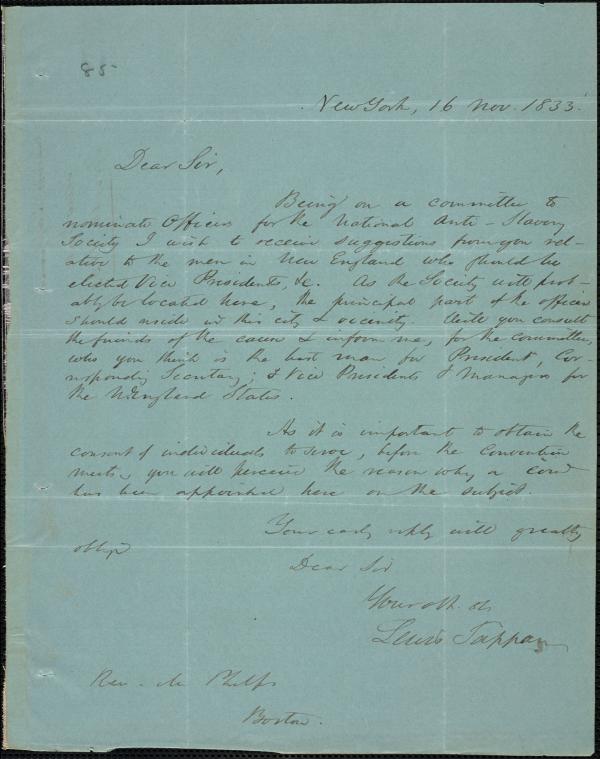 85
New York, 16 Nov. 1833.
Dear Sir,
Being on a committee to
nominate Officers for the National Anti-Slavery
Society I wish to receive suggestions from you rel-
ative to the men in New England who should be
elected Vice Presidents, &c. As the Society will prob-
ably be located here, the principal part of the officers
should reside in this city & vicinity. Will you consult
the friends of the cause & inform me, for the committee,
who you think is the best man for President, Cor-
responding Secretary; & Vice Presidents & Managers for
the N England States.
As it is important to obtain the
consent of individuals to serve, before the Convention
meets, you will perceive the reason why a com
has been appointed here on the subject.
Your early reply will greatly
oblige
Dear Sir
Your
Lewis Tappan
Rev. Mr Phelps
Boston.